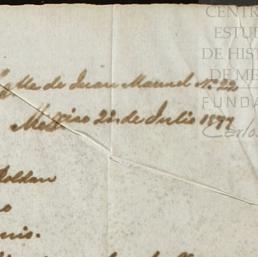 CENTR
ESTUD
DE HIST
DE MÉ
FUNDA
Carlos
Calle de Juan Manuel No. 22
México 22 de Julio 1877
Roldan
o
uis.